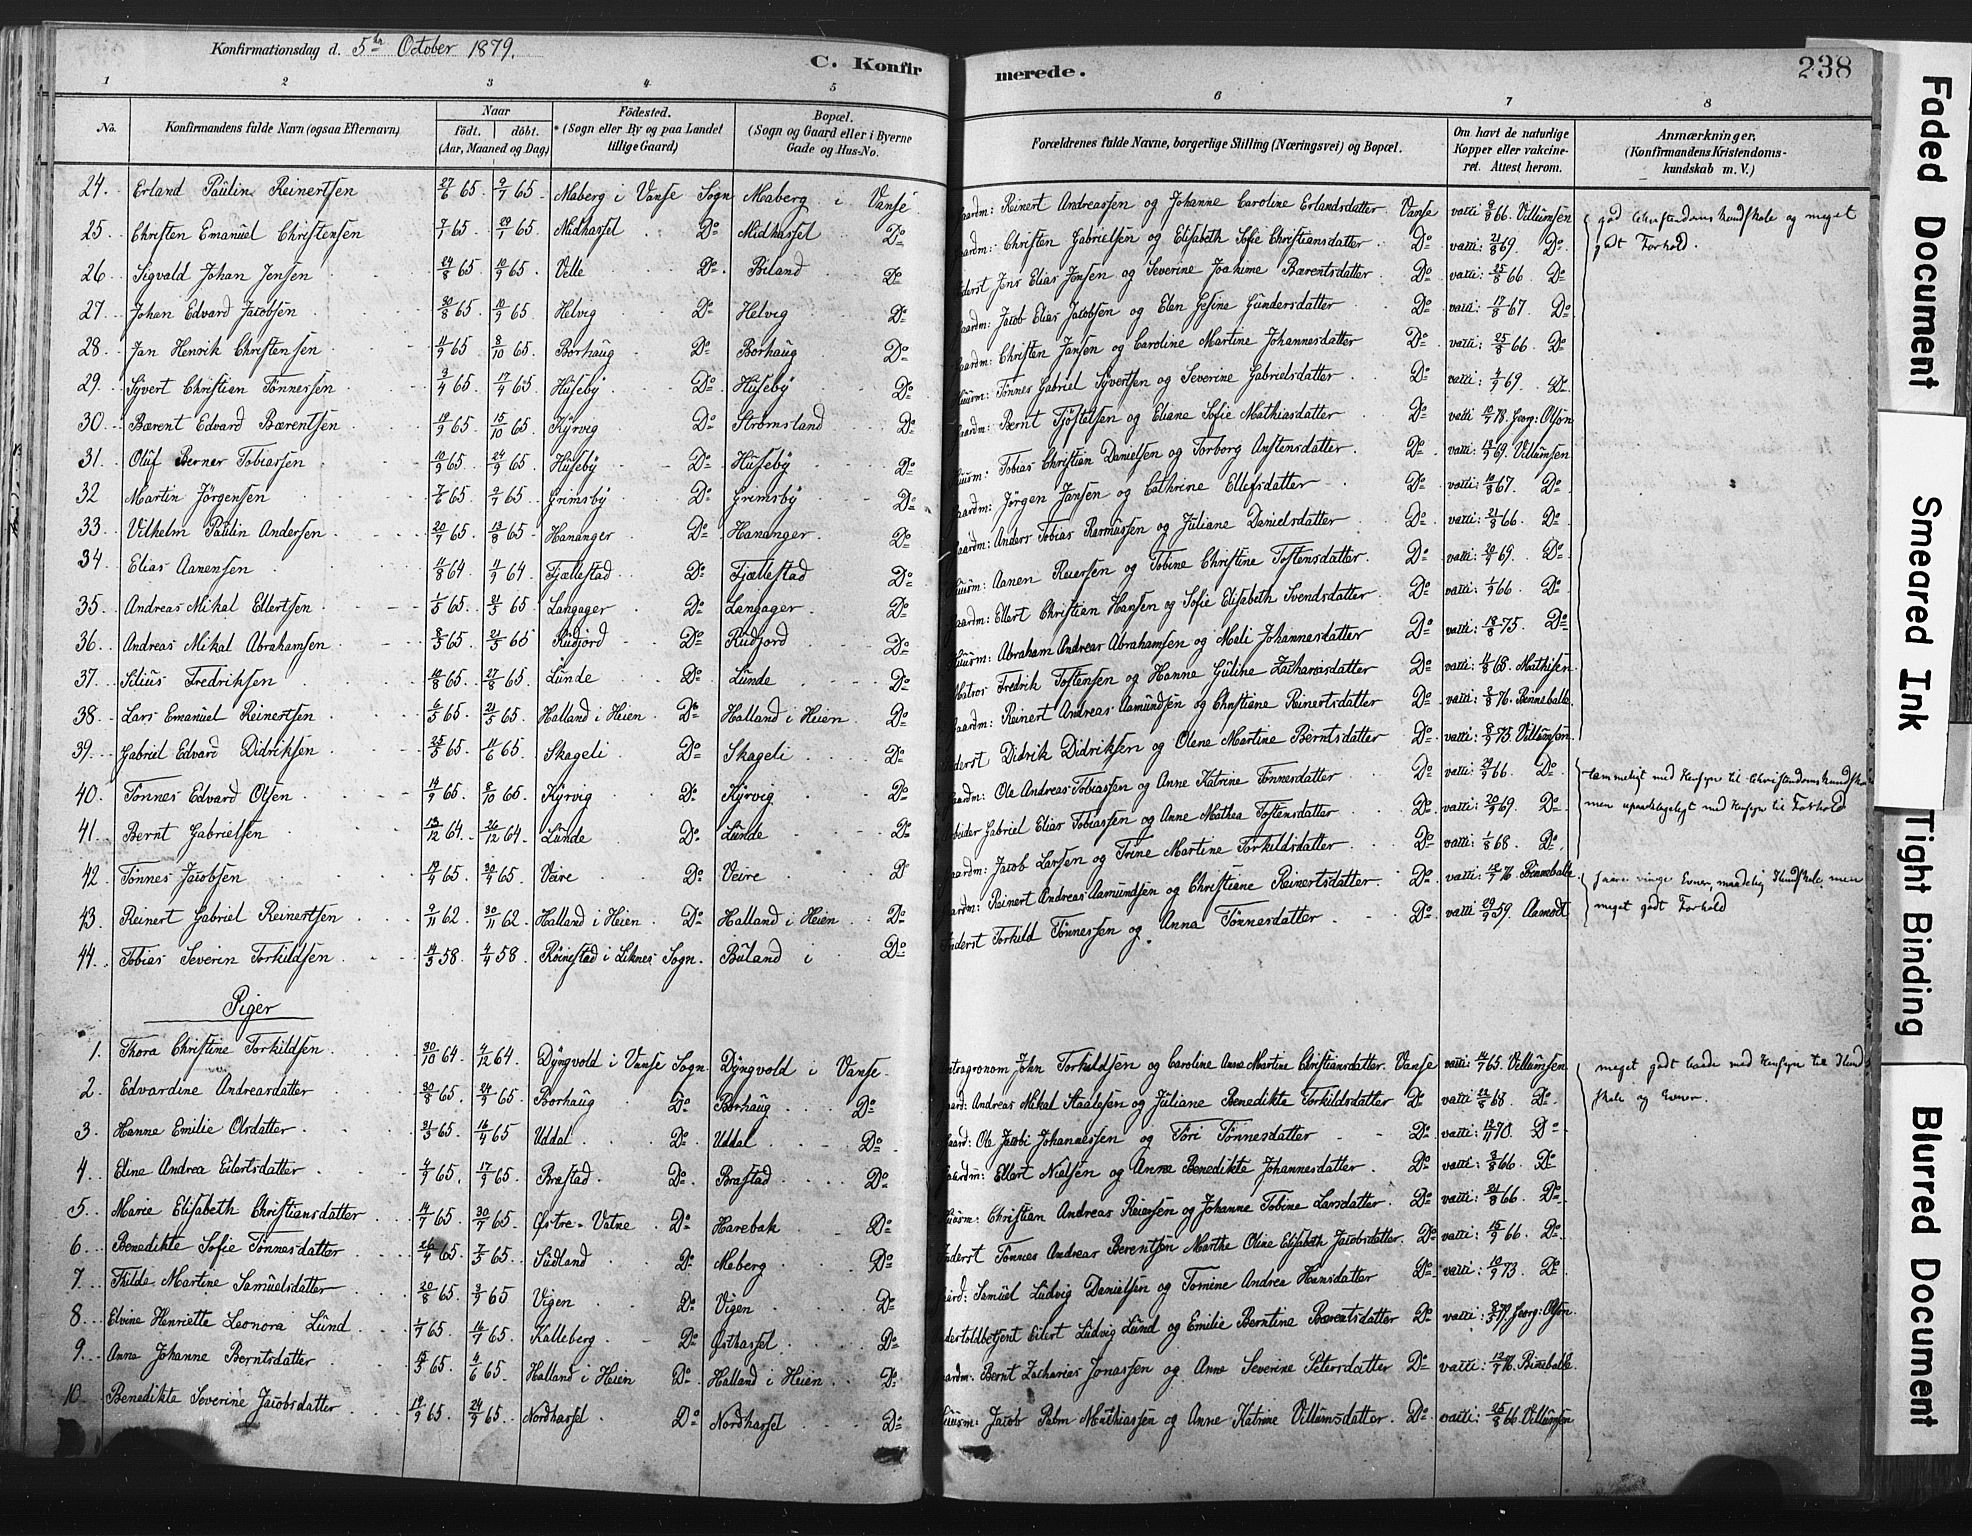 Konfirmationsdag d. 5te October 1879.
C. Konfirmerede.
238
1 2 3 4 5 6 7 8
No. Konfirmandens fulde Navn (ogsaa Efternavn) Naar født. døbt. (Aar, Maaned og Dag) Fødested. (Sogn eller By og paa Landet tillige Gaard) Bopæl. (Sogn og Gaard eller i Byerne Gade og Hus-No. Forældrenes fulde Navne, borgerlige Stilling (Næringsvei) og Bopæl. Om havt de naturlige Kopper eller vakcineret. Attest herom. Anmærkninger, (Konfirmandens Kristendomskundskab m. V.)
24. Erland Paulin Reinertsen 27/6 65. 9/7 65. Maberg i Vanse Sogn Maberg i Vanse. Reinert Andreassen og Johanne Caroline Erlandsdatter Vanse 66. Villumsen god Christendomskundskab og meget
25. Christen Emanuel Christensen 7/7 65. 29/7 65. Midhassel Do Midhassel Do Christen Gabrielsen og Elisabeth Sofie Christiansdatter Do 21/8 69. Do godt Forhold.
26. Sigvald Johan Jensen 24/8 65. 10/9 65. Velle Do. Biland Do Jens Elias Jensen og Severine Joakime Bærentsdatter Do 25/8 66. Do
27. Johan Edvard Jacobsen 30/8 65. 10/9 65. Helvig Do Helvig Do Jacob Elias Jacobsen og Elen Gesine Gundersdatter Do 17/8 67. Do
28. Jan Henrik Christensen 11/9 65. 8/10 65. Borhaug Do Borhaug Do Christen Jansen og Caroline Martine Johannesdatter Do 25/8 66. Do
29. Syvert Christian Tønnessen 3/4 65. 17/4 65. Huseby Do Huseby Do Tønnes Gabriel Syvertsen og Severine Gabrielsdatter Do 4/9 69. Do
30. Bærent Edvard Bærentsen 19/9 65. 15/10 65. Kyrvig Do Strømsland Do Bernt Tjøstelsen og Eliane Sofie Mathiasdatter Do 78. Georg: Olson
31. Oluf Berner Tobiassen 10/9 65. 24/9 65. Huseby Do Huseby Do Tobias Christian Danielsen og Torborg Anstensdatter Do 69. Villumsen
32 Martin Jørgensen 7/6 65. 9/7 65. Grimsby Do Grimsby Do Jørgen Jansen og Cathrine Ellefsdatter Do 10/8 67. Do
33. Vilhelm Paulin Andersen 20/7 65. 13/8 65. Hananger Do Hananger Do Anders Tobias Rasmussen og Juliane Danielsdatter Do 21/8 66. Do
34. Elias Aanensen 11/8 64. 11/9 64. Fjællestad Do Fjællestad Do Aanen Reiersen og Tobine Christine Tostensdatter Do 69. Do
35. Andreas Mikal Ellertsen 1/5 65. 21/5 65. Langager Do Langager Do Ellert Christian Hansen og Sofie Elisabeth Svendsdatter Do 66. Do
36. Andreas Mikal Abrahamsen 8/5 65. 21/5 65. Rudjord Do Rudjord Do Abraham Andreas Abrahamsen og Mali Johannesdatter Do 18/8 75. Do
37. Silius Fredriksen 10/8 65. 27/8 65. Lunde Do Lunde Do Matros Fredrik Tostensen og Hanne Guline Zachariasdatter Do 68. Mathisen
38. Lars Emanuel Reinertsen 6/5 65. 21/5 65. Halland i Heien Do Halland i Heien Do Reinert Andreas Aamundsen og Christiane Reinertsdatter Do 76. Binneballe
39. Gabriel Edvard Didriksen 25/5 65. 11/6 65. Skageli Do Skageli Do Didrik Didriksen og Olene Martine Berntsdatter Do 73. Villumsen.
40. Tønnes Edvard Olsen 14/9 65. 8/10 65. Kyrvig Do Kyrvig Do Ole Andreas Tobiassen og Anne Katrine Tønnesdatter Do 66. Do temmeligt med Hensyn til Christendomskundskab
41. Bernt Gabrielsen 13/12 64. 26/12 64. Lunde Do Lunde Do Gabriel Elias Tobiassen og Anne Mathea Tostensdatter Do 69. Do men upaaklageligt med Hensyn til Forhold
42. Tønnes Jacobsen 19/4 65. 30/4 65. Veire Do Veire Do Jacob Larsen og Trine Martine Torkildsdatter Do 1/8 68. Do
43. Reinert Gabriel Reinertsen 9/11 62. 30/11 62. Halland i Heien Do Halland i Heien Do Reinert Andreas Aamundsen og Christiane Reinertsdatter Do 76. Binneballe ringe Evner, maadelig Kundskab, men
44. Tobias Severin Torkildsen 14/3 58. 4/4 58. Røinestad i Liknes Sogn. Buland i Do Torkild Tønnessen og Anna Tønnesdatter Do 29/9 59. Aamodt meget godt Forhold
Piger
1. Thora Christine Torkildsen 30/10 64. 4/12 64. Dyngvold i Vanse Sogn Dyngvold i Vanse John Torkildsen og Caroline Anne Martine Christiansdatter Vanse 65. Villumsen meget godt baade med Hensyn til Kund-
2. Edvardine Andreasdatter 30/8 65. 24/9 65. Borhaug Do Borhaug Do Andreas Mikal Staalesen og Juliane Benedikte Torkildsdatter Do 68. Do skab og Evner.
3. Hanne Emilie Olsdatter 31/3 65. 16/4 65 Uddal Do Uddal Do Ole Jacobi Johannessen og Tøri Tønnesdatter Do 70. Do
4. Eline Andrea Eilertsdatter 4/9 65. 17/9 65. Brastad Do Brastad Do Ellert Nielsen og Anne Benedikte Johannesdatter Do 66. Do
5. Marie Elisabeth Christiansdatter 11/7 65. 30/7 65. Østre-Vatne Do Harebak Do Christian Andreas Reiersen og Johanne Tobine Larsdatter Do 21/8 66. Do
6. Benedikte Sofie Tønnesdatter 26/4 65. 7/5 65. Sudland Do Meberg Do Tønnes Andreas Berentsen Marthe Oline Elisabeth Jacobsdatter. Do 15/9 66. Do
7. Thilde Martine Samuelsdatter 20/8 65. 3/9 65 Vigen Do Vigen Do Samuel Ludvig Danielsen og Tomine Andrea Hansdatter Do 10/9 73. Do
8. Elvine Henriette Leonora Lund 1/7 65. 16/7 65. Kalleberg Do Østhassel Do Eilert Ludvig Lund og Emilie Berntine Bærentsdatter Do 79. Georg: Olson
9. Anne Johanne Berntsdatter 15/5 65. 4/6 65. Halland i Heien Do Halland i Heien Do Bernt Zacharias Jonassen og Anne Severine Petersdatter Do 76. Bineballe
10. Benedikte Severine Jacobsdatter 19/9 65. 24/9 65. Nordhassel Do Nordhassel Do Jacob Palm Mathiassen og Anne Katrine Villumsdatter. Do 25/8 66. Villumsen
Faded Document
Smeared Ink
Tight Binding
Blurred Document